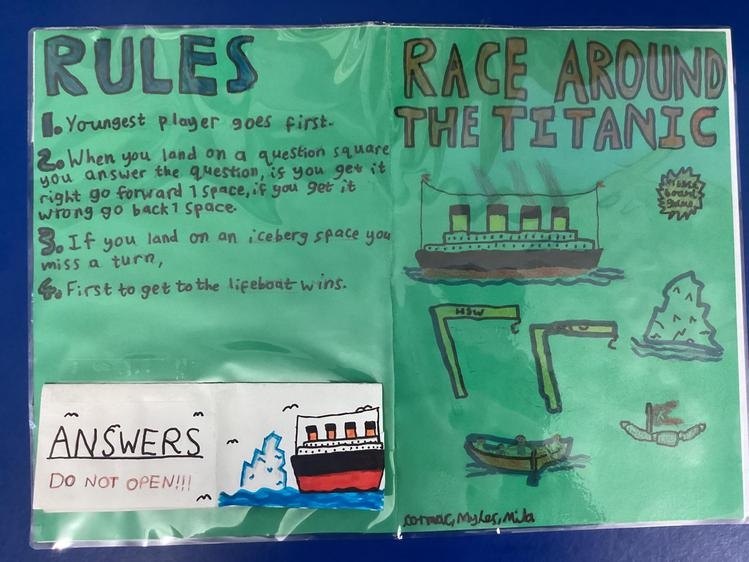 RULES
1. Youngest player goes first.
2. When you land on a question square
you answer the question, is you get it
right go forward 1 space, if you get it
wrong go back 1 space.
3. If you land on an iceberg space you
miss a turn,
4. First to get to the lifeboat wins.
ANSWERS
DO NOT OPEN!!!
RACE AROUND
THE TITANIC
board
game
H&W
Cormac, Myles, Mila